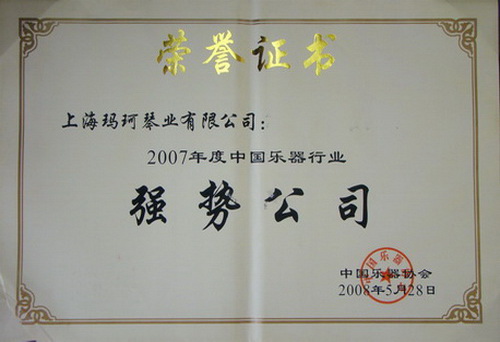 荣誉证书
上海玛珂琴业有限公司:
2007年度中国乐器行业
强势公司
中国乐器协会
2008年5月28日